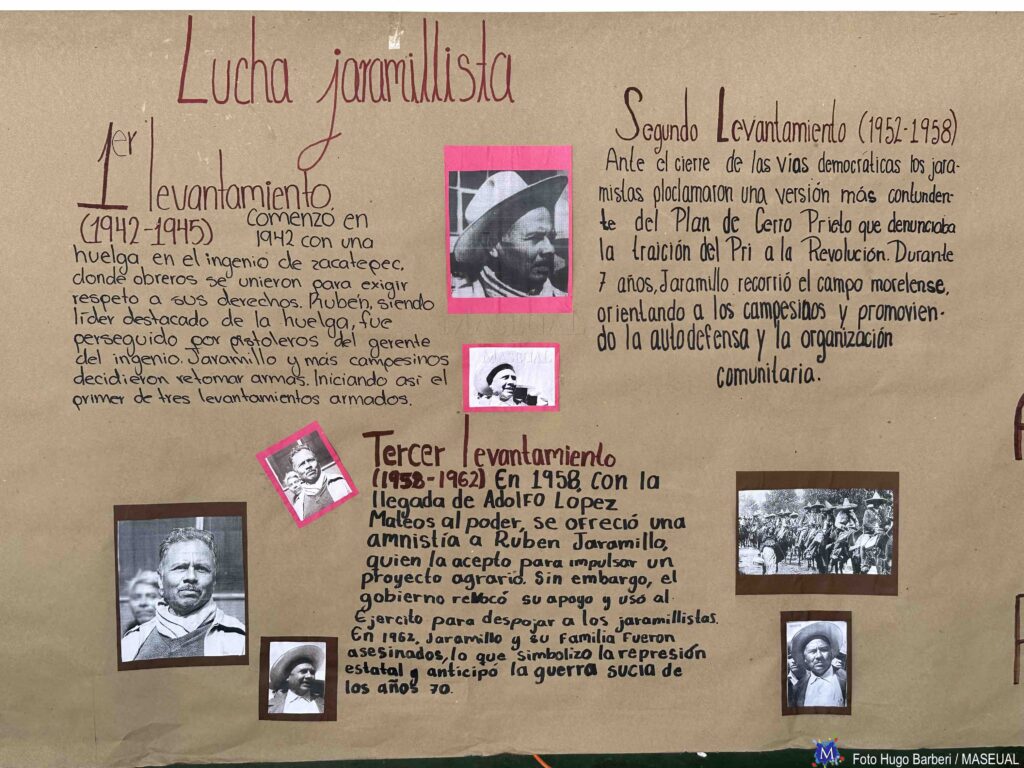 Lucha jaramillista
1er levantamiento.
(1942-1945) Comenzó en
1942 con una
huelga, en el ingenio de zacatepec,
donde obreros se unieron para exigir
respeto a sus derechos. Rubén, siendo
líder destacado de la huelga, fue
perseguido por pistoleros del gerente
del ingenio. Jaramillo y más campesinos
decidieron retomar armas. Iniciando así el
primer de tres levantamientos armados.
Segundo Levantamiento (1952-1958)
Ante el cierre de las vías democráticas los jara-
mistas ploclamaron una versión más contunden-
te del Plan de Cerro Prieto que denunciaba
la traición del Pri a la Revolución. Durante
7 años, Jaramillo recorrió el campo morelense,
orientando a los campesinos y promovien-
do la autodefensa y la organización
comunitaria.
Tercer levantamiento
(1958-1962) En 1958, con la
llegada de Adolfo Lopez
Mateos al poder, se ofreció una
amnistía a Ruben Jaramillo,
quien la acepto para impulsar un
proyecto agrario. Sin embargo, el
gobierno revocó su apoyo y usó al
Ejercito para despojar a los jaramillistas.
En 1962, Jaramillo y su familia fueron
asesinados, lo que simbolizo la represión
estatal y anticipó la guerra sucia de
los años 70.
MASEUAL
M Foto Hugo Barberi / MASEUAL